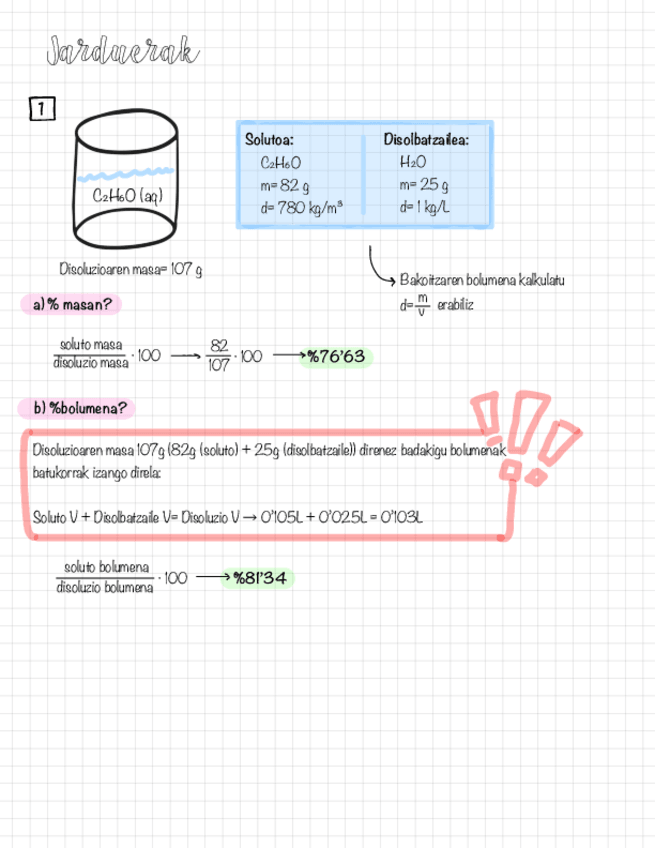 Jarduerak
1
C₂H₆O (aq)
Solutoa:
C₂H₆O
m= 82 g
d= 780 kg/m³
Disolbatzailea:
H₂O
m= 25 g
d= 1 kg/L
Disoluzioaren masa= 107 g
Bakoitzaren bolumena kalkulatu
d= m/v erabiliz
a) % masan?
soluto masa / disoluzio masa · 100 → 82/107 · 100 → %76'63
b) %bolumena?
Disoluzioaren masa 107g (82g (soluto) + 25g (disolbatzaile)) direnez badakigu bolumenak
batukorrak izango direla:
Soluto V + Disolbatzaile V= Disoluzio V → 0'105L + 0'025L = 0'103L
soluto bolumena / disoluzio bolumena · 100 → %81'34